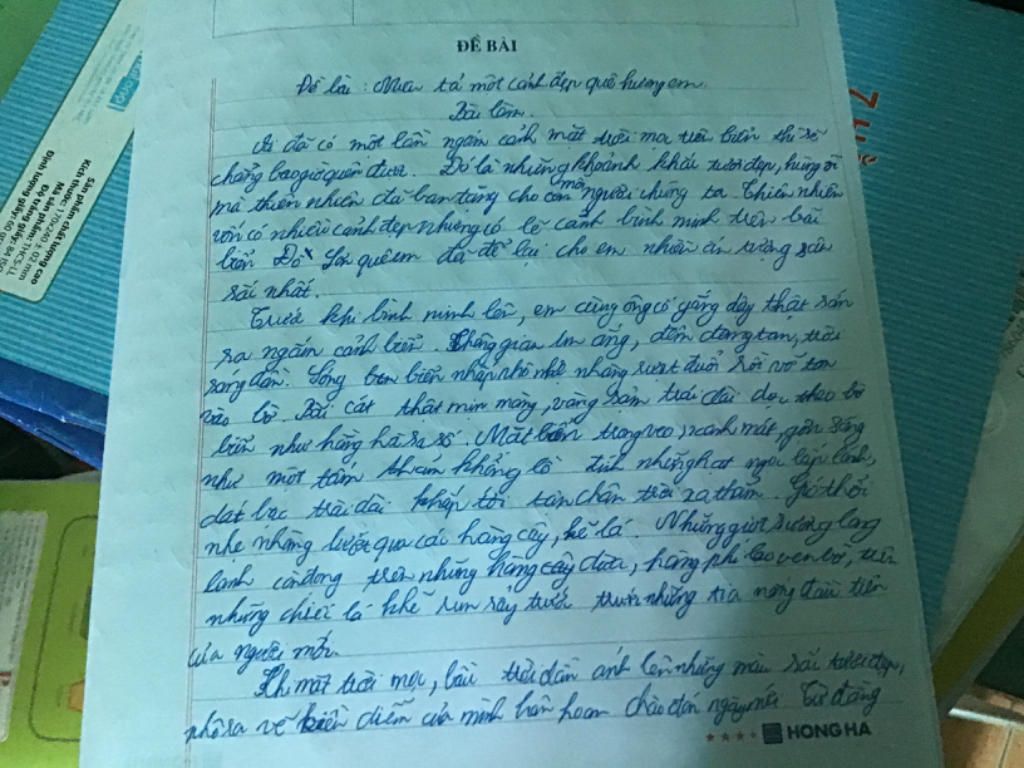 ĐỀ BÀI
Đề bài : Miêu tả một cảnh đẹp quê hương em.
Bài làm.
Ai đã có một lần ngắm cảnh mặt trời mọc trên biển thì sẽ
chẳng bao giờ quên được. Đó là những khoảnh khắc tươi đẹp, hùng vĩ
mà thiên nhiên đã ban tặng cho con người chúng ta. Thiên nhiên
vốn có nhiều cảnh đẹp nhưng có lẽ cảnh bình minh trên bãi
biển Đồ Sơn quê em đã để lại cho em nhiều ấn tượng sâu
sắc nhất.
Trước khi bình minh lên, em cùng ông cố gắng dậy thật sớm
ra ngắm cảnh biển. Không gian im ắng, đêm dần tan, trời
sáng dần. Sóng biển nhấp nhô nhẹ nhàng rượt đuổi rồi vỗ tan
vào bờ. Bãi cát thật mịn màng, vàng sậm trải dài dọc theo bờ
biển như hằng hà sa số. Mặt biển trong veo, xanh mát, gợn sóng
như một tấm thảm khổng lồ đính những hạt ngọc lấp lánh,
dát bạc trải dài khắp tới tận chân trời xa thẳm. Gió thổi
nhẹ nhàng lướt qua các hàng cây, kẽ lá. Những giọt sương long
lanh còn đọng trên những hàng cây dừa, hàng phi lao ven bờ, trên
những chiếc lá khẽ run rẩy trước những tia nắng đầu tiên
của người mới.
Khi mặt trời mọc, bầu trời dần ánh lên những màu sắc tươi đẹp,
phô ra vẻ kiều diễm của mình hân hoan chào đón ngày mới. Từ đằng
HONG HA
Sản phẩm chất lượng cao
Kích thước: 170x240 ± 02 mm
Mã sản phẩm: THCS-LL
Định lượng giấy: 60 g